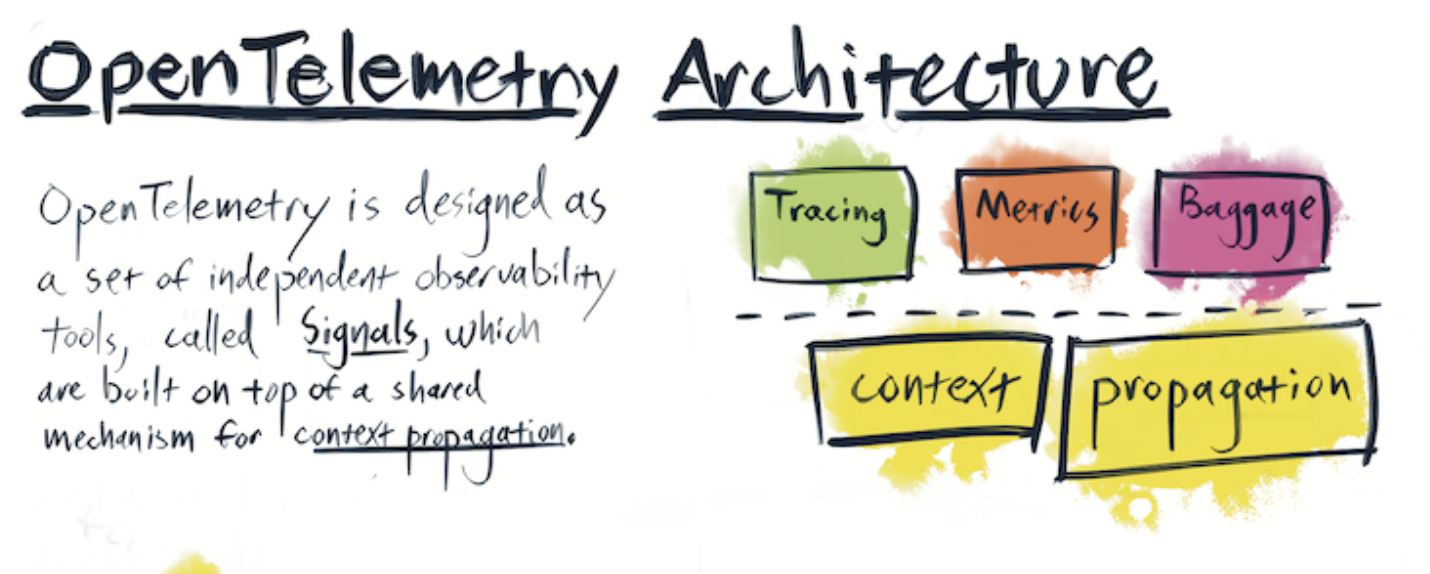 OpenTelemetry Architecture
OpenTelemetry is designed as
a set of independent observability
tools, called Signals, which
are built on top of a shared
mechanism for context propagation.
Tracing
Metrics
Baggage
context
propagation